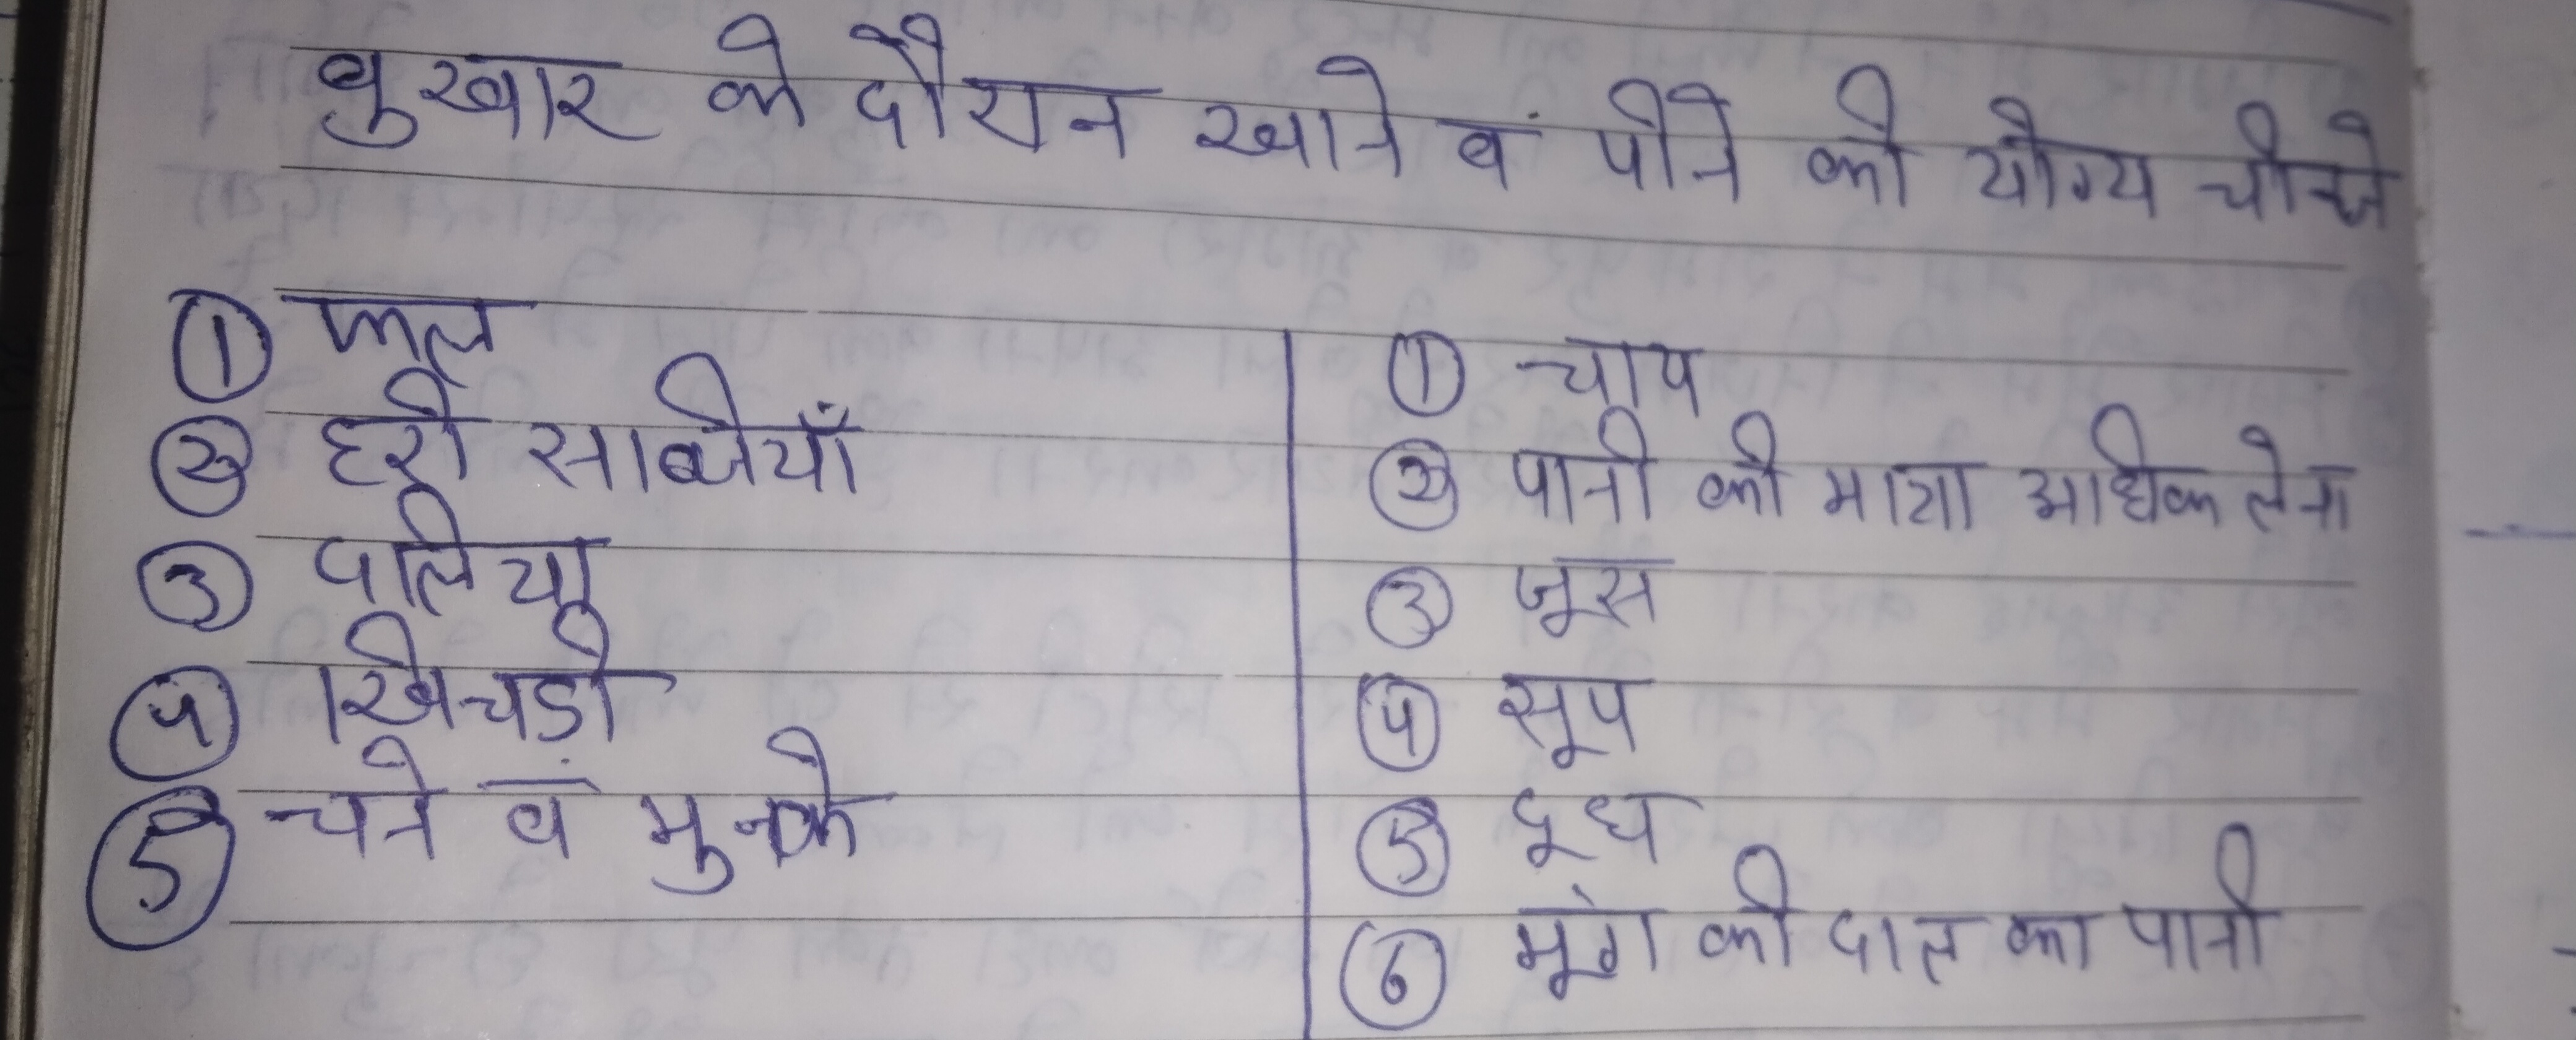 बुखार के दौरान खाने वं पीने की योग्य चीजे
① फल
② हरी साब्जियाँ
③ दलिया
④ खिचडी
⑤ चने वं मुनक्के
① चाय
② पानी की मात्रा अधिक लेना
③ जूस
④ सूप
⑤ दूध
⑥ मूंग की दाल का पानी